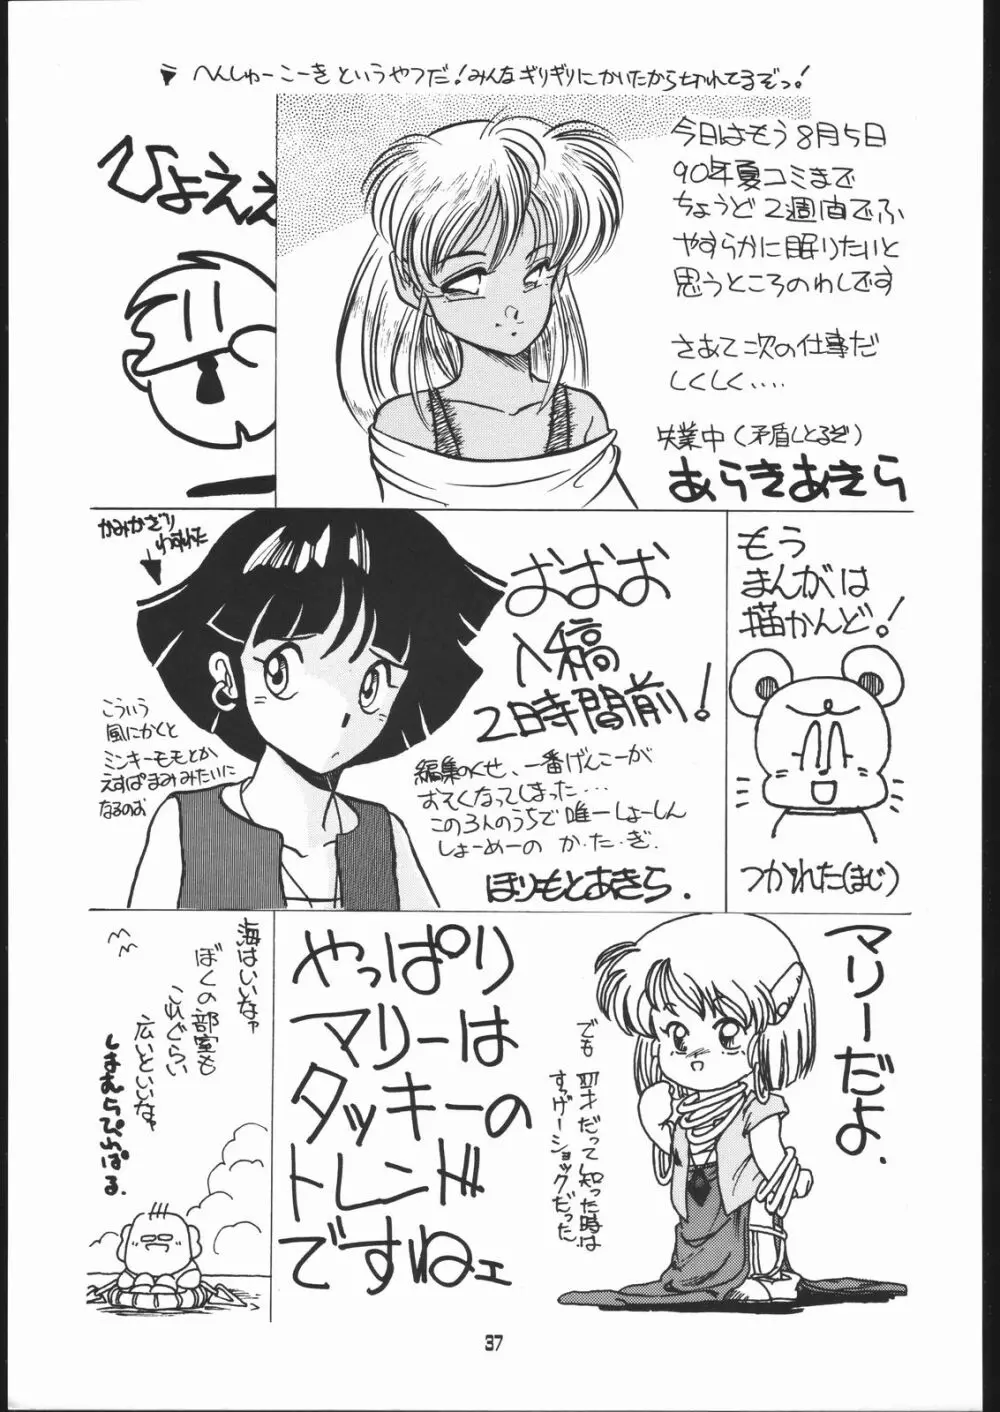 へんしゅーこーきというやつだ!みんなギリギリにかいたから切れてるぞっ!
ひょえぇ
今日はもう8月5日
90年夏コミまで
ちょうど2週間でふ
やすらかに眠りたいと
思うところのわしです
さあて次の仕事だ
しくしく‥‥
失業中(矛盾しとるぞ)
あらきあきら
かみかざり
わすれた
おおお
入稿
2日時間前!
こういう
風にかくと
ミンキーモモとか
えすぱまみみたいに
なるのお
編集のくせ、一番げんこーが
おそくなってしまった…
この3人のうちで唯一しょーしん
しょーめーの か・た・ぎ.
ほりもとあきら.
もう
まんがは
描かんど!
つかれた(まじ)
海はいいなァ
ぼくの部室も
これぐらい
広いといいなァ
しまむらぴらぱる.
やっぱり
マリーは
タッキーの
トレンド
ですねェ
マリーだよ.
だって知った時は
すっげーショックだった
37